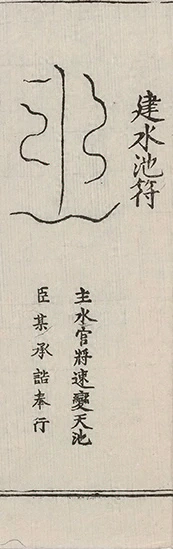 建水池符
主水官將速變天池
臣某承誥奉行